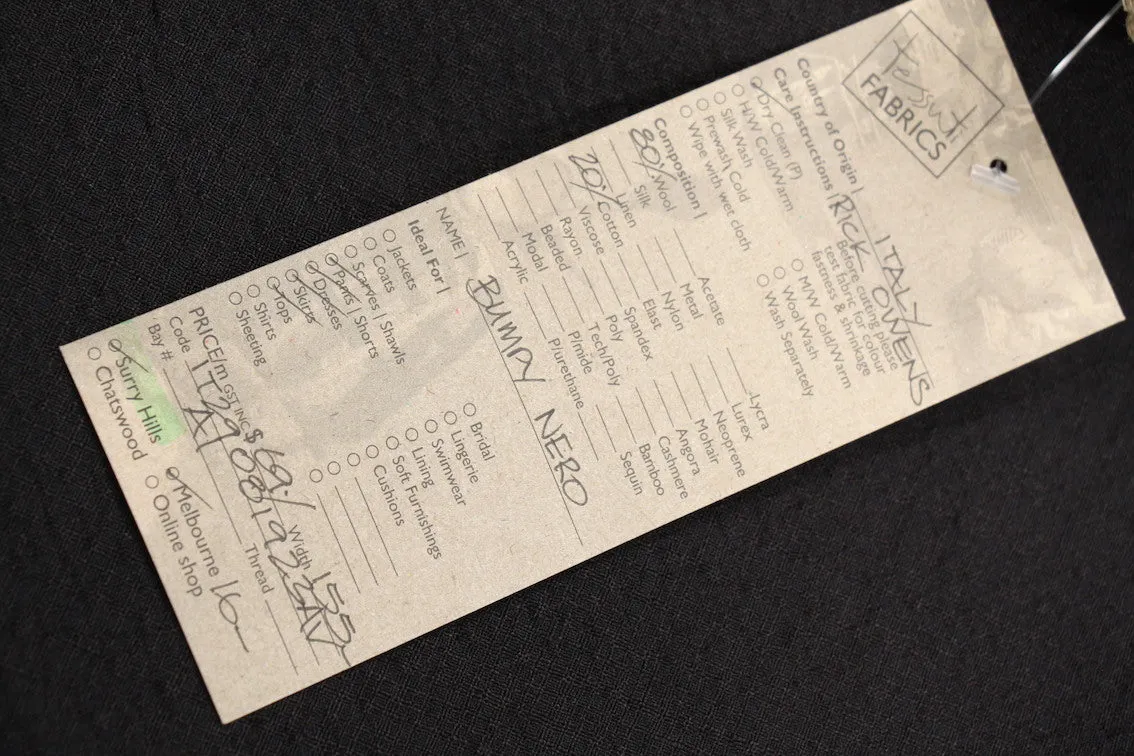 Tessuti
FABRICS
Country of Origin | ITALY
Care Instructions | RICK OWENS
Dry Clean (P)
H/W Cold/Warm
Silk Wash
Prewash Cold
Wipe with wet cloth
Before cutting please
test fabric for colour
fastness & shrinkage
M/W Cold/Warm
Wool Wash
Wash Separately
Composition |
80% Wool
Silk
Linen
20% Cotton
Viscose
Rayon
Beaded
Modal
Acrylic
Acetate
Metal
Nylon
Elast
Spandex
Poly
Tech/Poly
P/mide
P/urethane
Lycra
Lurex
Neoprene
Mohair
Angora
Cashmere
Bamboo
Sequin
NAME | BUMPY NERO
Ideal For |
Jackets
Coats
Scarves | Shawls
Pants | Shorts
Dresses
Skirts
Tops
Shirts
Sheeting
Bridal
Lingerie
Swimwear
Lining
Soft Furnishings
Cushions
PRICE/m GST INC $69.- Width 155
Code
Bay # A1 Thread
Surry Hills
Chatswood
Melbourne 16
Online shop